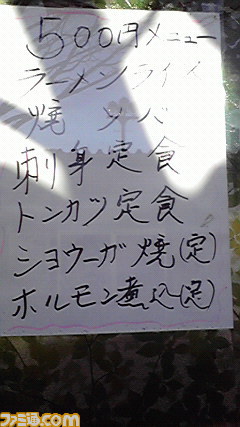 500円メニュー
ラーメンライス
焼ソバ
刺身定食
トンカツ定食
ショウーガ焼(定)
ホルモン煮込(定)
ファミ通.com